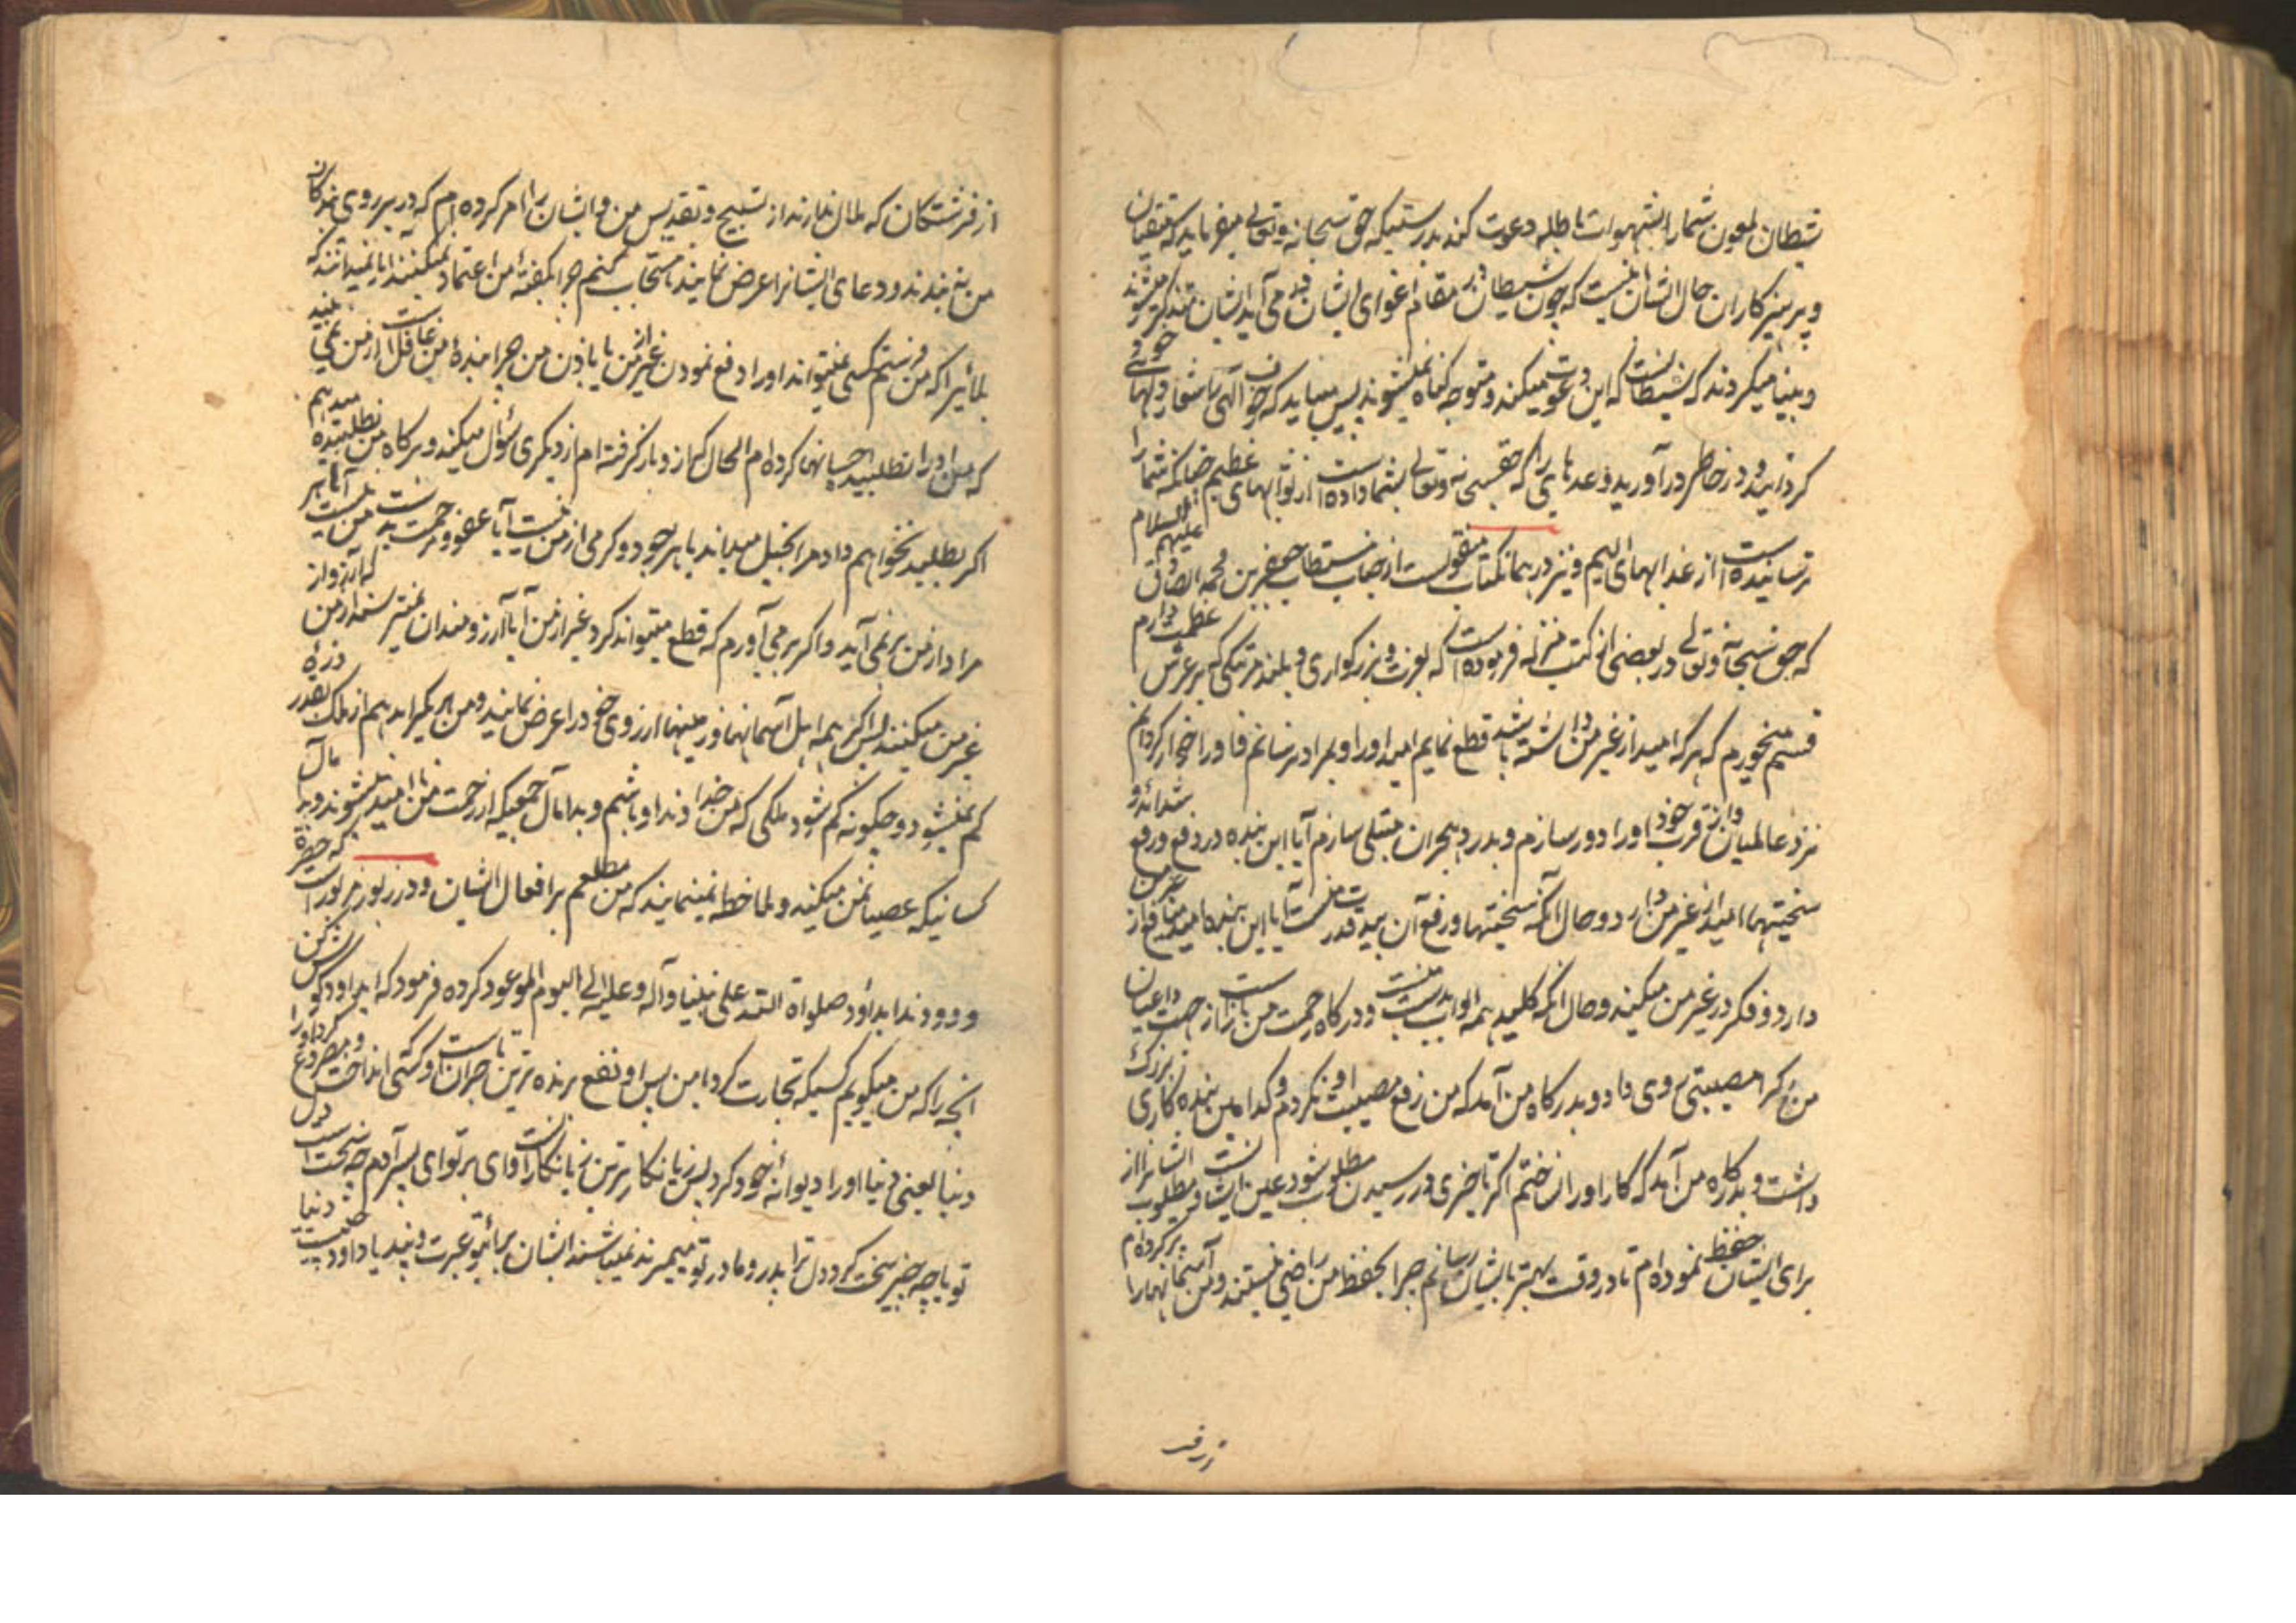 شیطان لعون شما را بشهوات باطله دعوت کند بدرستیکه حق سبحانه وتعالی میفرماید که متقیان
و پرهیزکاران حال ایشان اینست که چون شیطان در مقام اغوای ایشان در می آید ایشان متذکر میشوند
و بینا میکردند که شیطانست که این دعوت میکند و متوجه کناه نمیشوند پس میباید که خوف الهی را شعار دلهای خود
کردانید و در خاطر در آورید وعدهایی را که حقسبحانه وتعالی بشما داده است از ثوابهای عظیم چنانکه شما را
ترسانیده است از عذابهای الیم و نیز در همان کتاب منقولست از جناب مستطاب جعفر بن محمد الصادق علیهم السلام
که حق سبحانه وتعالی در بعضی از کتب منزله فرموده است که بعزت و بزرکواری و بلند مرتبکی که بر عرش عظمت دارم
قسم میخورم که هرکه امید از غیر من داشته باشد قطع نمایم امید او را و بمراد نرسانم و او را خوار کردانم
نزد عالمیان و از قرب خود او را دور سازم و بدرد هجران مبتلی سازم آیا این بنده در دفع و رفع شدائد و
سختیها امید از غیر من دارد و حال آنکه سختیها و رفع آن بید قدرت منست آیا این بنده امید از غیر من
دارد و فکر در غیر من میکند و حال آنکه کلید همه ابواب بدست منست و درکاه رحمت من باز است از جهت داعیان
من کرا مصیبتی روی داد و بدرکاه من آمد که من رفع مصیبت او نکردم و کدامین بنده کاری بزرک
داشت و بدرکاه من آمد که کار او را نساختم اکر تاخیری در رسیدن مطلوب شود عین ایشانست و مطلوب ایشانرا از
برای ایشان حفظ نموده ام تا در وقت بهتر بایشان رسانم چرا بحفظ من راضی نیستند و من آسمانهما را پر کرده ام
از فرشتکان که ملال ندارند از تسبیح و تقدیس من و ایشان را امر کرده ام که در بر روی بندکان
من نبندند و دعای ایشانرا عرض نمایند تا مستجاب کنم چرا بکفته من اعتماد نمیکنند آیا نمیدانند که
بلائیرا که من فرستم کسی نمیتواند او را دفع نمودن غیر از من یا باذن من چرا بنده من غافل است از من نمی بیند
که من او را نطلبیده احسانها کرده ام الحال که از و باز کرفته ام از دیکری سؤال میکند و هرکاه من نطلبیده میدهم
اکر بطلبد نخواهم داد مرا بخیل میداند یا هر جود و کرمی از من نیست آیا عفو و رحمت بدست من نیست آیا هر
مراد از من بر نمی آید و اکر بر می آورم که قطع میتواند کرد غیر از من آیا آرزومندان نمیترسند از من که آرزو از
غیر من میکنند پس اکر همه اهل آسمانها و زمینها آرزوی خود را عرض نمایند و من بهر یک بدهم از ملک بقدر ذره
کم نمیشود و چکونه کم شود ملکی که من خداوند او باشم و بدا بحال جمعیکه از رحمت من نا امید میشوند و بدا مآل
کسانیکه عصیان من میکنند و ملاحظه نمینمایند که من مطلعم بر افعال ایشان و در زبور مزبور است که حضرة
ودود ندا بداود صلواة الله علی نبینا و آله و علیه الی الیوم الموعود کرده فرمود که ای داود کوش کن
آنچه را که من میکویم کسیکه تجارت کرد با من پس او نفع برنده ترین تاجرانست و کسی انداخت و مصروع کرد او را
دنیا یعنی دنیا او را دیوانه خود کرد پس زیانکارترین زیانکارانست وای بر تو ای پسر آدم چه سخت است دل
تو یا چه چیز سخت کرد دل ترا پدر و مادر تو میمیرند نمیباشند ایشان برای تو عبرت و پند یا داود چیست دنیا